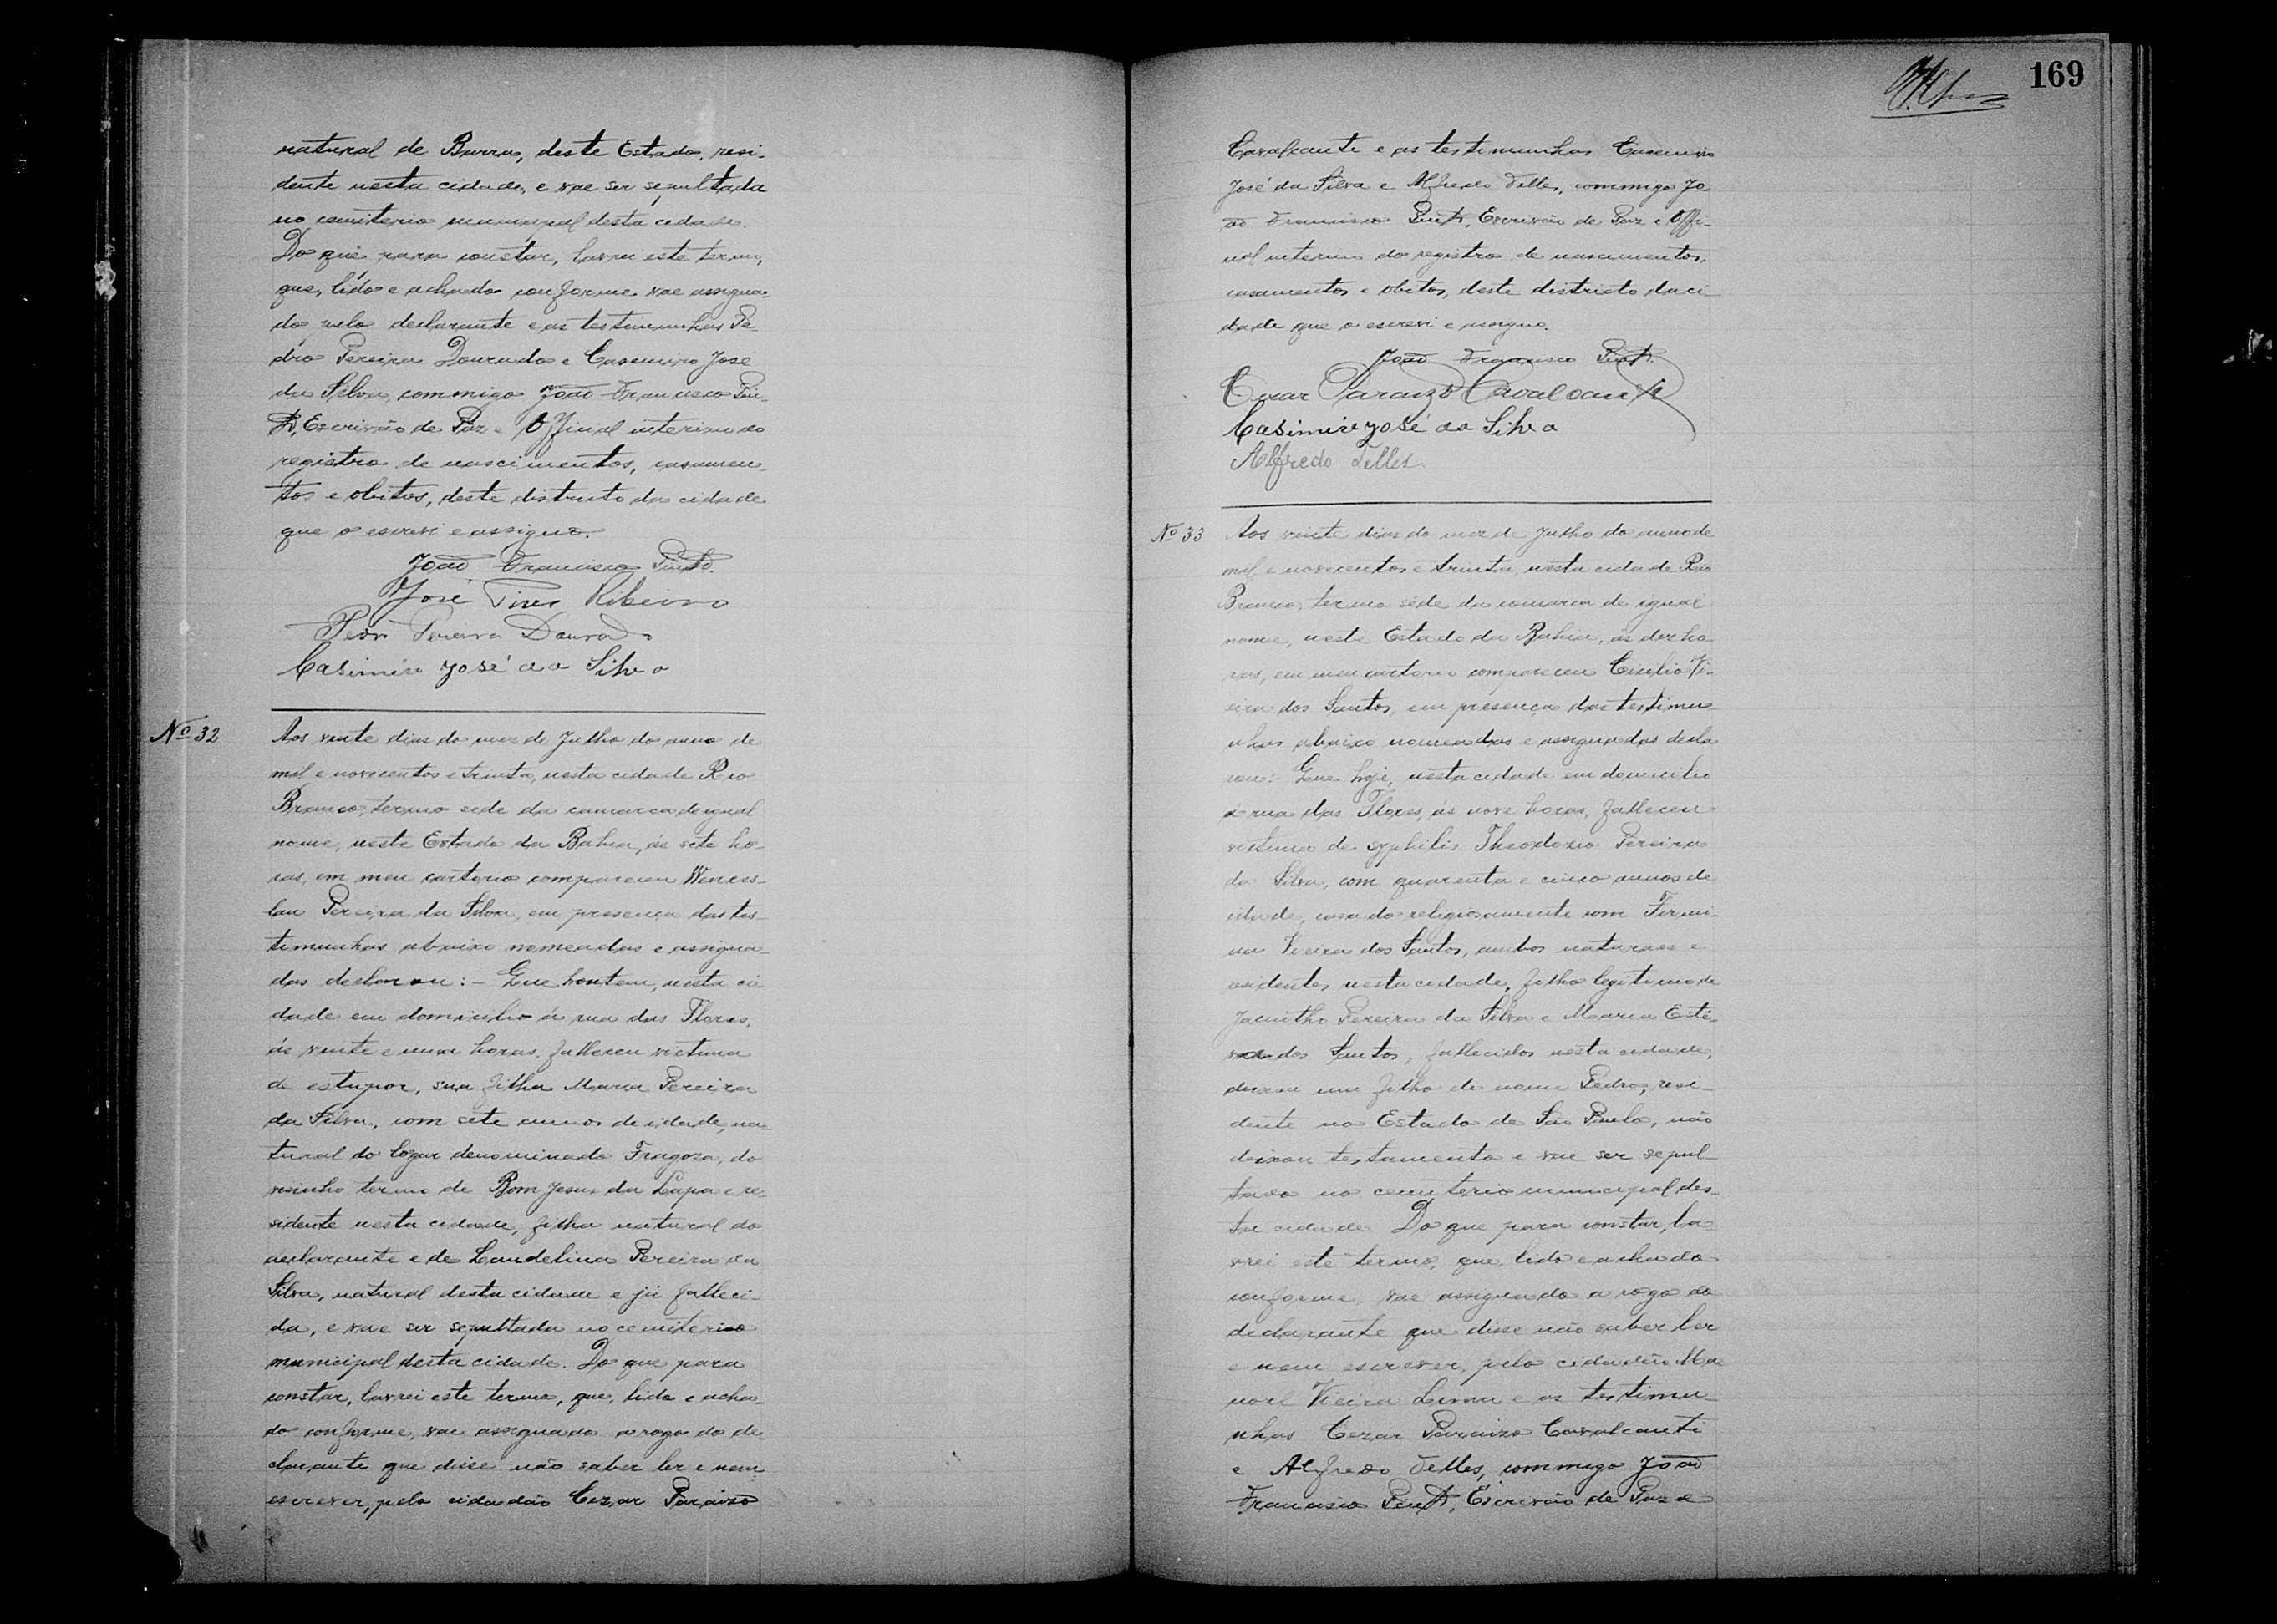 natural de Barra, deste Estado, resi-
dente nesta cidade, e vae ser sepultada
no cemiterio municipal desta cidade.
Do que para constar, lavrei este termo,
que, lido e achado conforme vae assigna-
do pelo declarante e as testemunhas Pe-
dro Pereira Dourado e Casemiro José
da Silva, commigo João Francisco Pin-
to, Escrivão de Paz e Official interino do
registro de nascimentos, casamen-
tos e obitos, deste districto da cidade
que o escrevi e assigno.
João Francisco Pinto.
José Pires Ribeiro
Pedro Pereira Dourado
Casimiro José da Silva
Nº 32
Aos vinte dias do mez de Julho do anno de
mil e novecentos e trinta, nesta cidade Rio
Branco, termo sede da comarca de igual
nome, neste Estado da Bahia, ás sete ho-
ras, em meu cartorio compareceu Wences-
lau Pereira da Silva, em presença das tes-
temunhas abaixo nomeadas e assigna-
das declarou: - Que hontem, nesta ci-
dade em domicilio á rua das Flores,
ás vinte e uma horas, falleceu victima
de estupor, sua filha Maria Pereira
da Silva, com sete annos de idade, na-
tural do logar denominado Fragoza, do
visinho termo de Bom Jesus da Lapa e re-
sidente nesta cidade, filha natural do
declarante e de Laudelina Pereira da
Silva, natural desta cidade e já falleci-
da, e vae ser sepultada no cemiterio
municipal desta cidade. Do que para
constar, lavrei este termo, que, lido e acha-
do conforme, vae assignado a rogo do de-
clarante que disse não saber ler e nem
escrever, pelo cidadão Cezar Paraizo
169
Cavalcante e as testemunhas Casemiro
José da Silva e Alfredo Telles, commigo Jo
ão Francisco Pinto, Escrivão de Paz e Offi-
cial interino do registro de nascimentos,
casamentos e obitos, deste districto da ci
dade que o escrevi e assigno.
João Francisco Pinto.
Cezar Paraizo Cavalcante
Casimiro José da Silva
Alfredo Telles
Nº 33
Aos vinte dias do mez de Julho do anno de
mil e novecentos e trinta, nesta cidade Rio
Branco, termo séde da comarca de igual
nome, neste Estado da Bahia, ás dez ho
ras, em meu cartorio compareceu Cicilio Vi-
eira dos Santos, em presença das testemu
nhas abaixo nomeadas e assignadas decla
rou: - Que hoje, nesta cidade em domicilio
á rua das Flores, ás nove horas, falleceu
victima de syphilis Theodozio Pereira
da Silva, com quarenta e cinco annos de
idade, casado religiosamente com Firmi-
na Vieira dos Santos, ambos naturaes e
residentes nesta cidade, filho legitimo de
Jacintho Pereira da Silva e Maria Este-
vão dos Santos, fallecidos nesta cidade,
deixou um filho de nome Pedro, resi-
dente no Estado de São Paulo, não
deixou testamento e vae ser sepul-
tado no cemiterio municipal des-
ta cidade. Do que para constar, la-
vrei este termo, que, lido e achado
conforme, vae assignado a rogo do
declarante que disse não saber ler
e nem escrever, pelo cidadão Ma
noel Vieira Lima e as testemu-
nhas Cezar Paraizo Cavalcante
e Alfredo Telles, commigo João
Francisco Pinto, Escrivão de Paz e